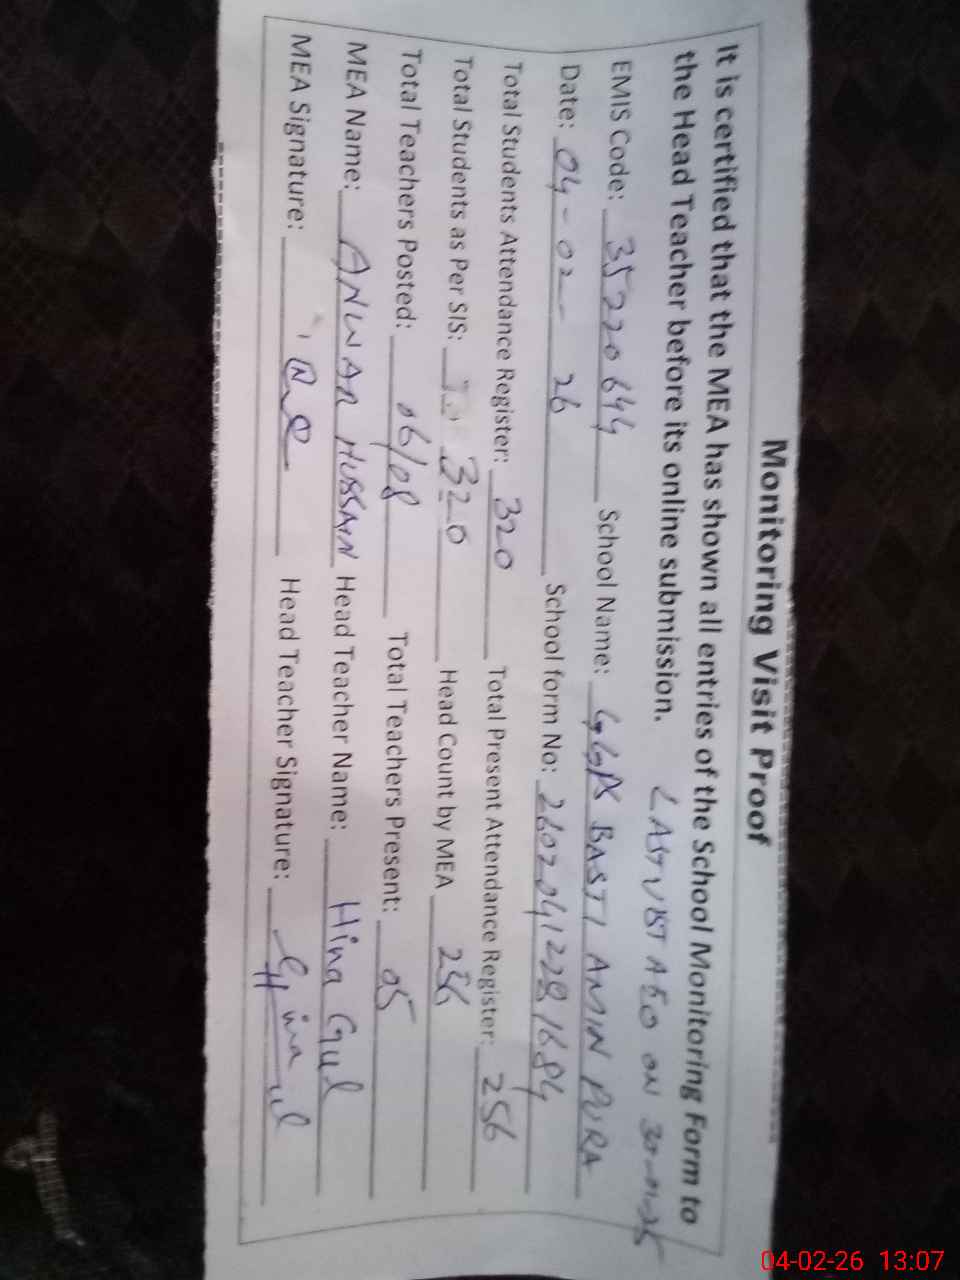 Monitoring Visit Proof
It is certified that the MEA has shown all entries of the School Monitoring Form to
the Head Teacher before its online submission. LAST VIST AEO ON
EMIS Code: 35220644 School Name: GGPS BASTI AMIN PURA
Date: 04-02-26 School form No: 26020412281684
Total Students Attendance Register: 320 Total Present Attendance Register: 256
Total Students as Per SIS: 320 Head Count by MEA 256
Total Teachers Posted: 06/08 Total Teachers Present: 05
MEA Name: ANWAR HUSSAIN Head Teacher Name: Hina Gul
MEA Signature: Head Teacher Signature:
04-02-26 13:07